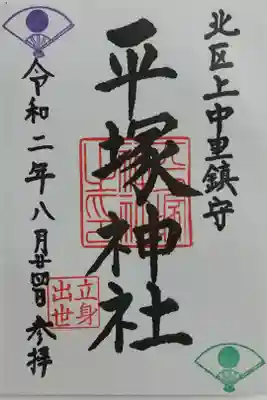 北区上中里鎮守
平塚神社
令和二年八月廿四日参拝
立身
出世